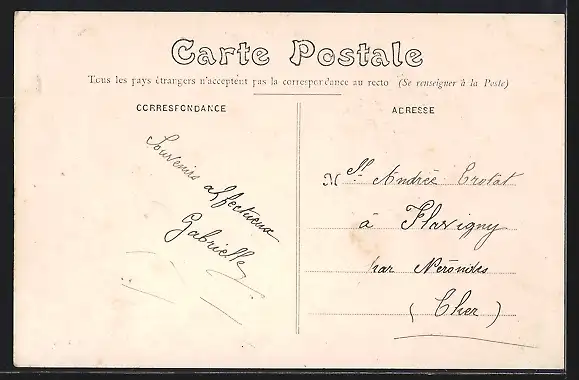 Carte Postale
Tous les pays étrangers n'acceptent pas la correspondance au recto (Se renseigner à la Poste)
CORRESPONDANCE
Souvenirs
affectueux
Gabrielle
ADRESSE
Mlle Andrée Trotat
à Flavigny
par Nérondes
(Cher)